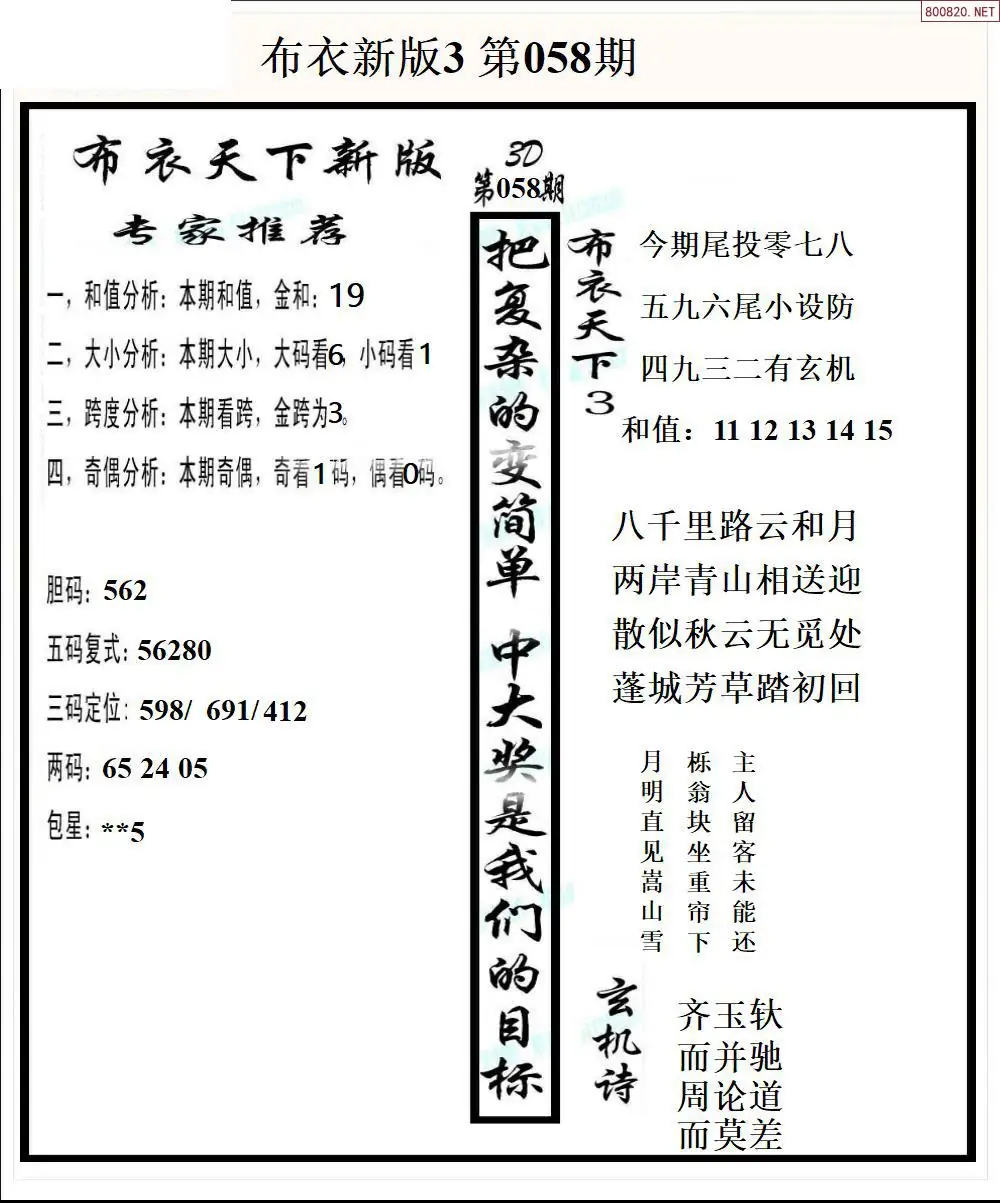 800820.NET
布衣新版3 第058期
布衣天下新版
专家推荐
一，和值分析：本期和值，金和：19
二，大小分析：本期大小，大码看6，小码看1
三，跨度分析：本期看跨，金跨为3。
四，奇偶分析：本期奇偶，奇看1码，偶看0码。
胆码：562
五码复式：56280
三码定位：598/ 691/412
两码：65 24 05
包星：**5
3D
第058期
把复杂的变简单 中大奖是我们的目标
布衣天下3
今期尾投零七八
五九六尾小设防
四九三二有玄机
和值：11 12 13 14 15
八千里路云和月
两岸青山相送迎
散似秋云无觅处
蓬城芳草踏初回
主人留客未能还
栎翁块坐重帘下
月明直见嵩山雪
玄机诗
齐玉轪
而并驰
周论道
而莫差